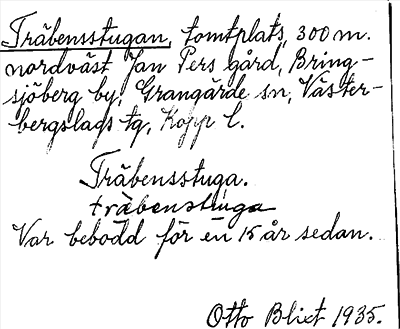 Träbensstugan, tomtplats, 300 m.
nordväst Jan Pers gård, Bring-
sjöberg by, Grangärde sn, Väster-
bergslags tg, Kopp l.
Träbensstuga.
träbenstuga
Var bebodd för en 15 år sedan.
Otto Blixt 1935.